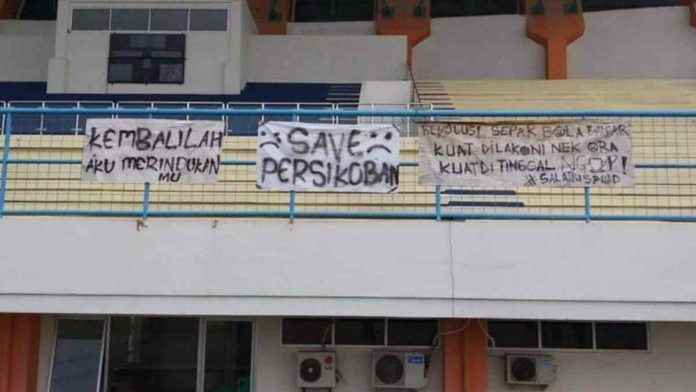 KEMBALILAH
AKU MERINDUKAN
MU
SAVE
PERSIKOBAN
REVOLUSI SEPAK BOLA BANJAR
KUAT DILAKONI NEK ORA
KUAT DI TINGGAL NGOPI!